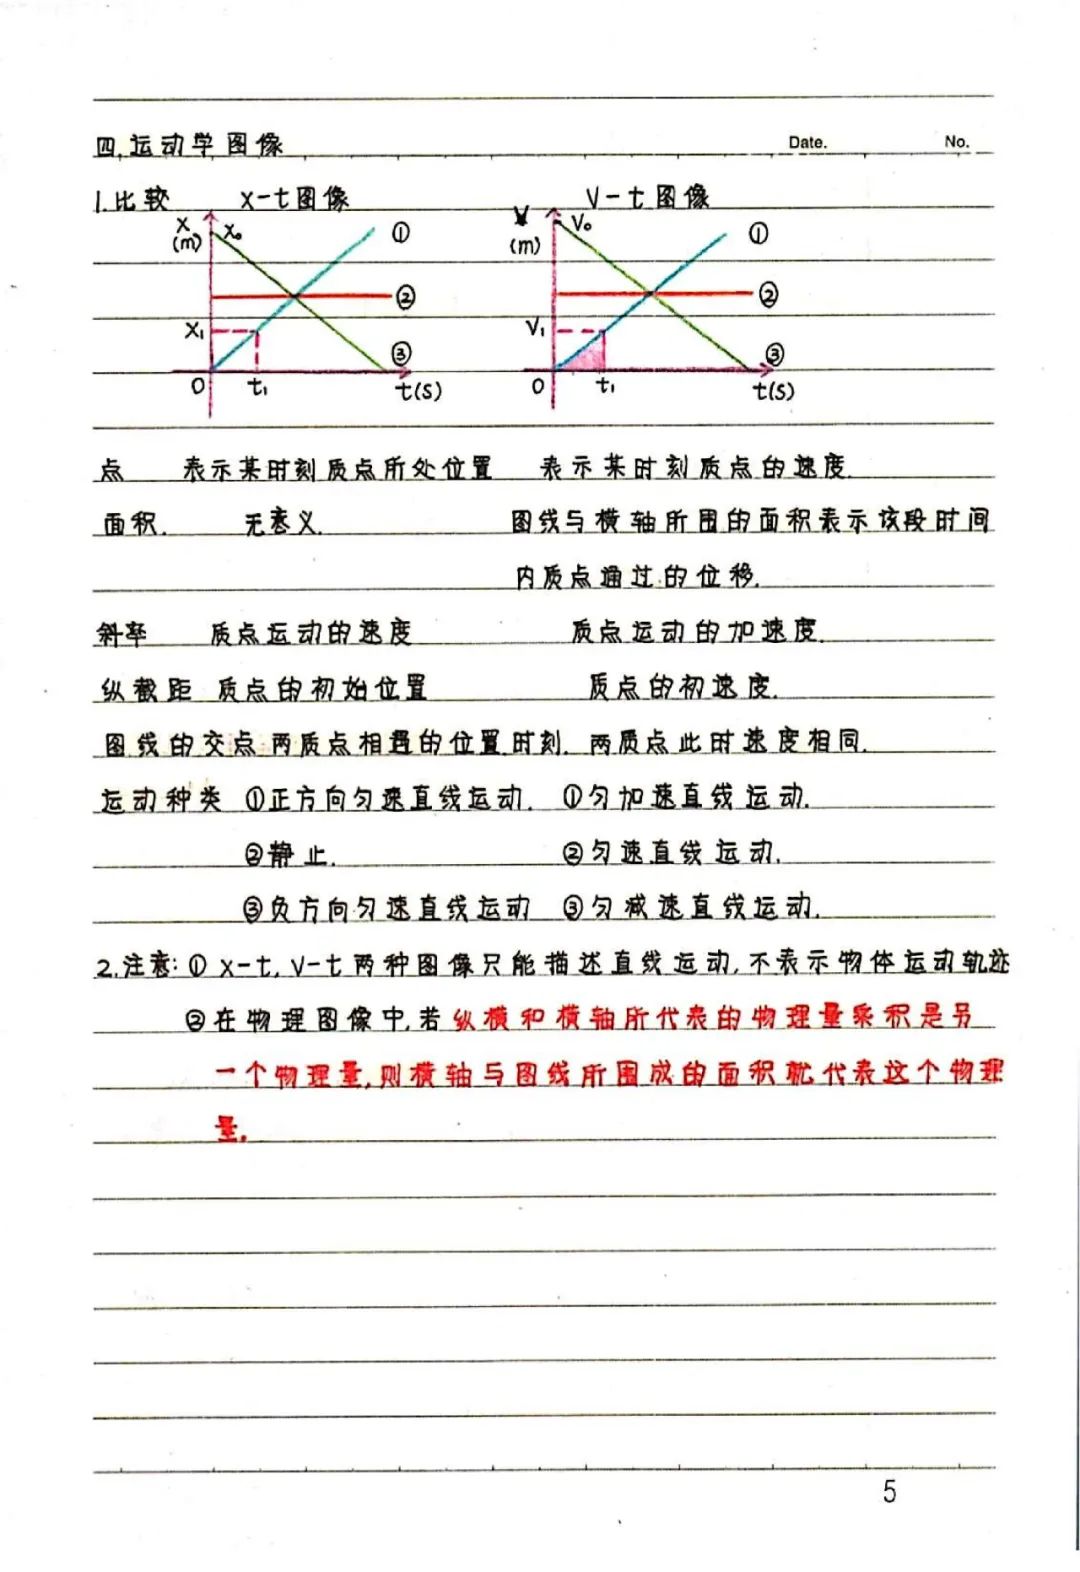 四.运动学图像
Date. No.
1.比较 x-t图像 V-t图像
x (m) x₀ ① ② x₁ ③ 0 t₁ t(s)
V (m) V₀ ① ② V₁ ③ 0 t₁ t(s)
点 表示某时刻质点所处位置 表示某时刻质点的速度.
面积. 无意义. 图线与横轴所围的面积表示该段时间
内质点通过的位移.
斜率 质点运动的速度 质点运动的加速度.
纵截距 质点的初始位置 质点的初速度.
图线的交点 两质点相遇的位置.时刻. 两质点此时速度相同.
运动种类 ①正方向匀速直线运动. ①匀加速直线运动.
②静止. ②匀速直线运动.
③负方向匀速直线运动 ③匀减速直线运动.
2.注意:① x-t, V-t两种图像只能描述直线运动,不表示物体运动轨迹
②在物理图像中,若纵横和横轴所代表的物理量乘积是另
一个物理量,则横轴与图线所围成的面积就代表这个物理
量.
5